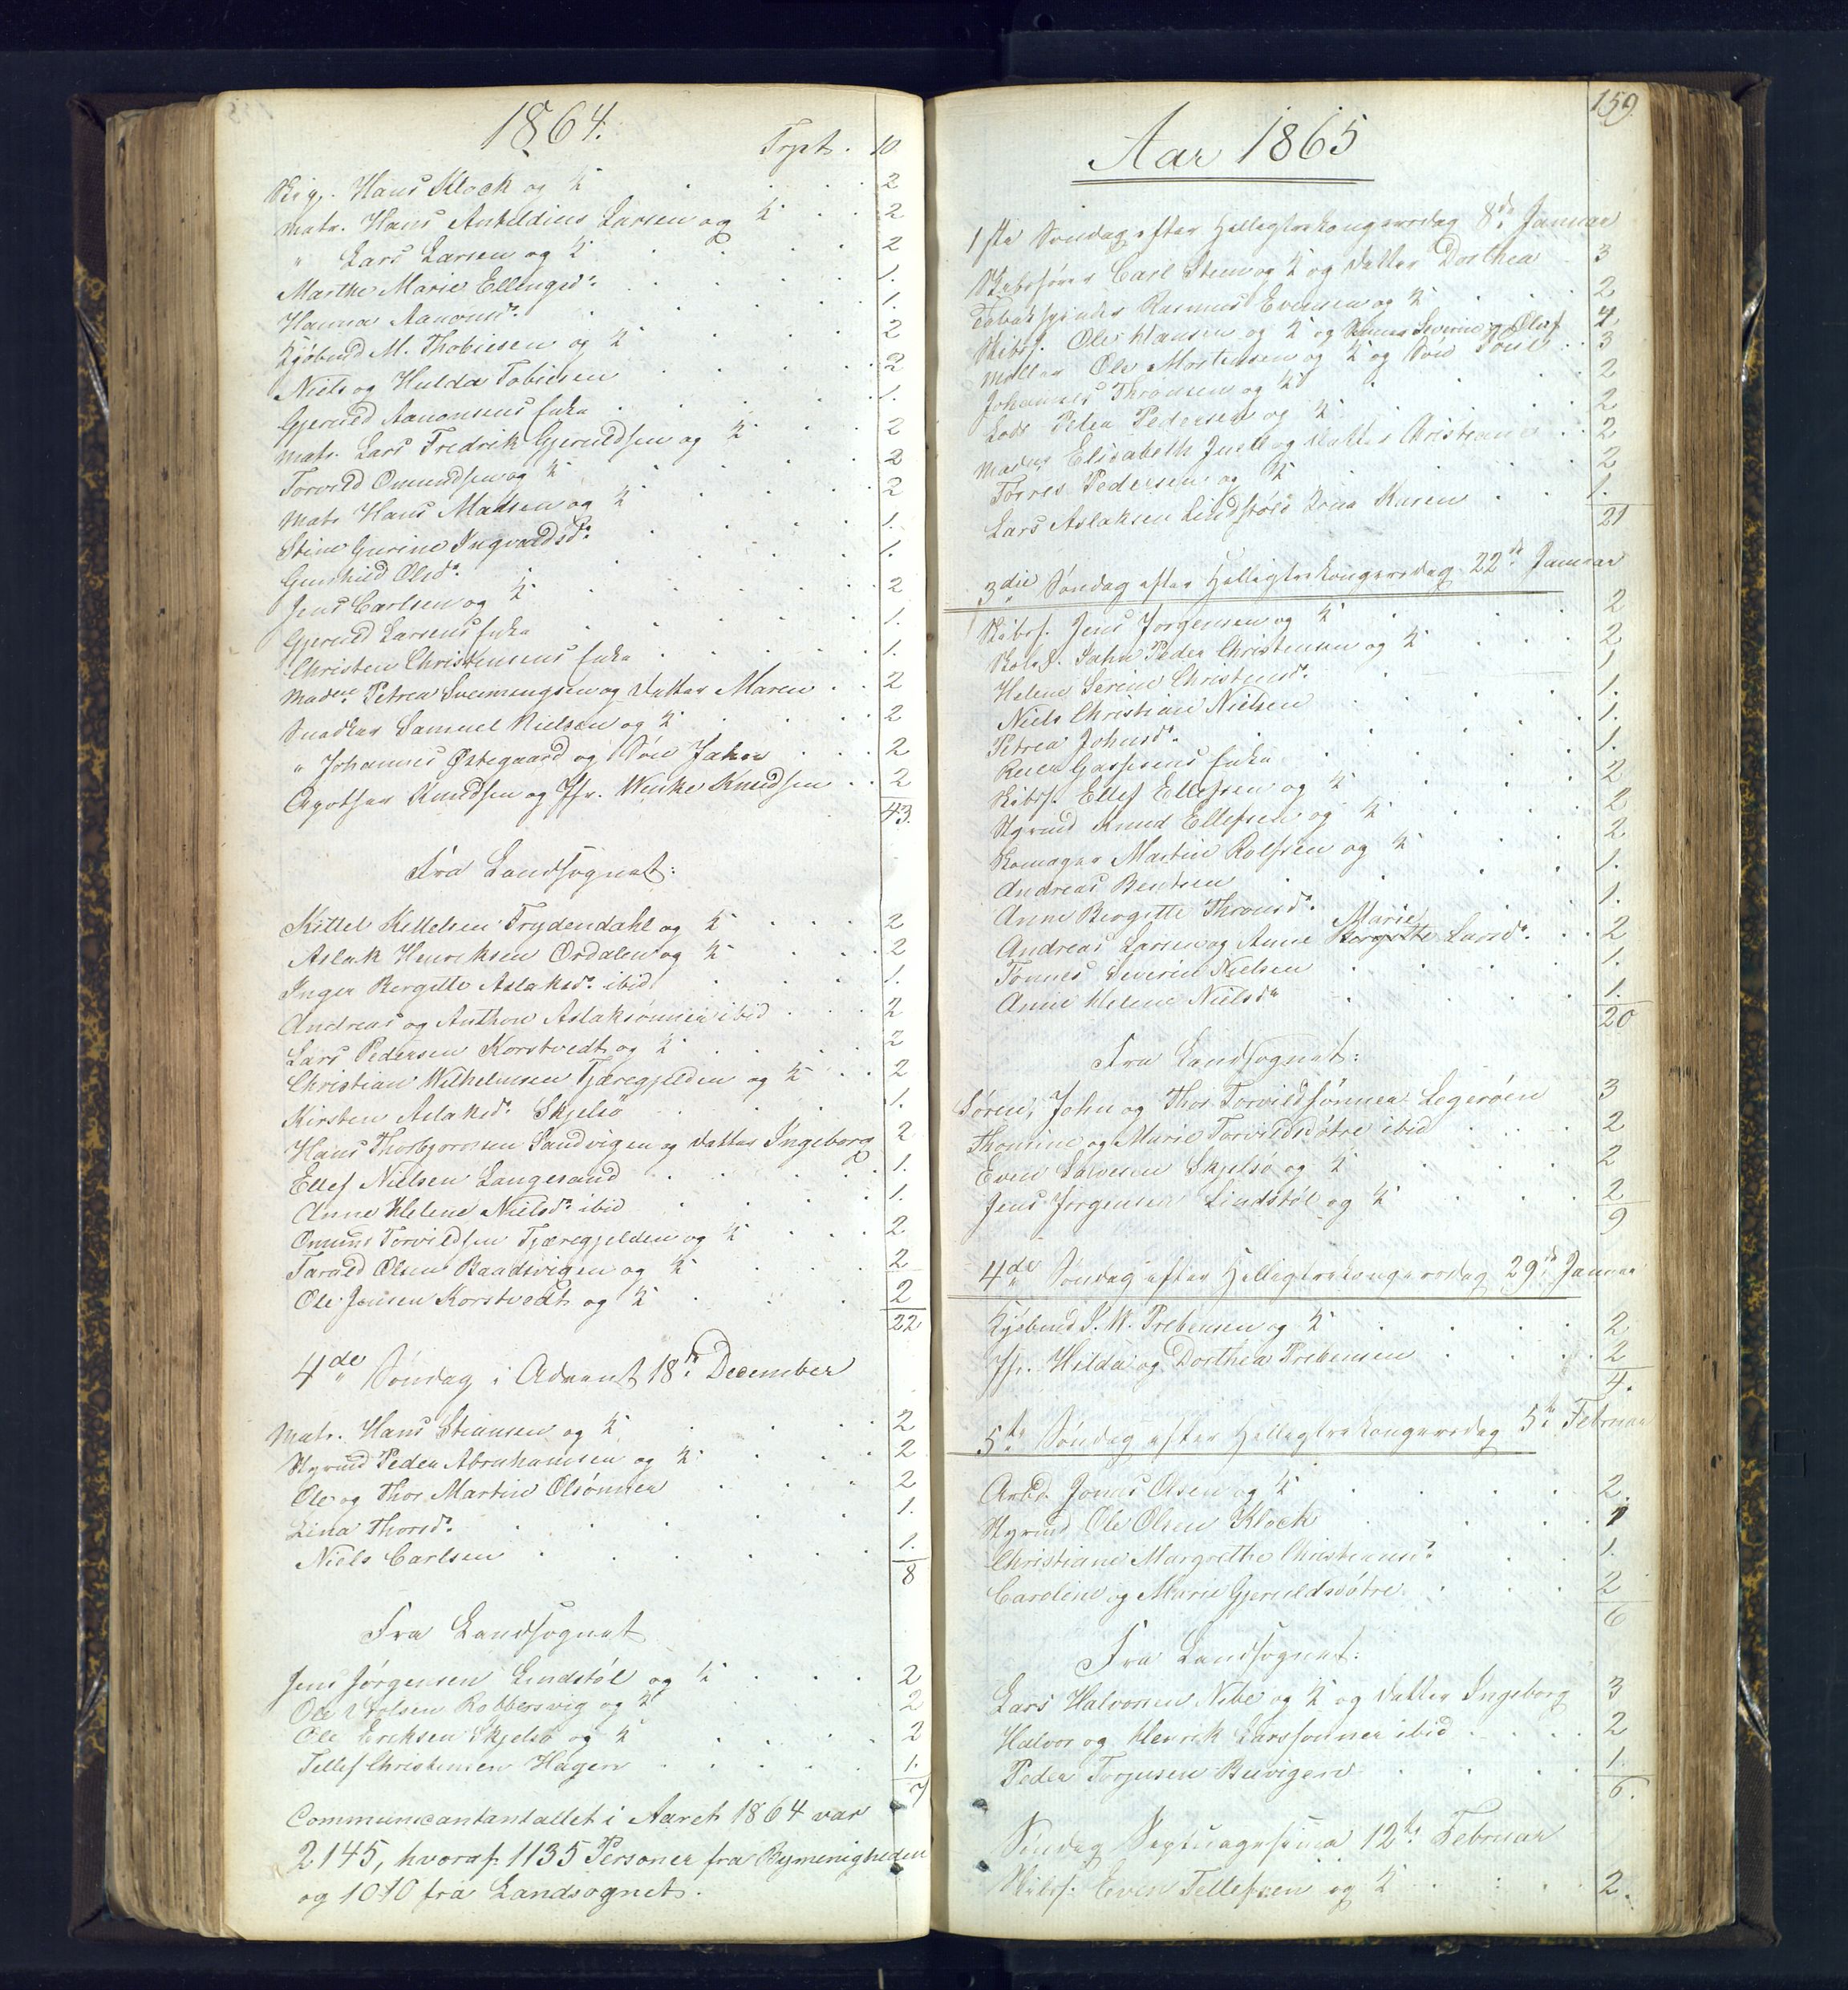 1864.
Trpt. 10
Hans Klock og K 2
Matr. Hans Anhildius Larsen og K 2
" Lars Larsen og K 2
Marthe Marie Ellingsd. 1.
Hanna Aanonsd. 1.
Kjøbmd M. Thobiesen og K 2
Niels og Hulda Tobiesen 2
Gjeruld Aanonsens Enke 1.
Matr. Lars Fredrik Gjeruldsen og K 2
Torvild Omundsen og K 2
Matr Hans Madsen og K 2
Stine Gurine Ingvaldsd. 1.
Gunhild Olsd. 1.
Jens Carlsen og K 2
Gjeruld Larsens Enke 1.
Christen Christensens Enke 1.
Mad. Petrea Svenningsen og Datter Maren 2
Snedker Samuel Nielsen og K 2
" Johannes Østegaard og Søn Jakob 2
Knudsen og Jfr. Wenke Knudsen 2
43.
Fra Landsognet:
Kittel Kittelsen Trydendahl og K 2
Aslak Henriksen Ordalen og K 2
Inger Bergitte Aslaksd. ibid 1.
Andreas og Anthon Aslaksønner ibid 2
Lars Pedersen Korstvedt og K 2
Christian Wilhelmsen Tjæregjelden og K 2
Kirsten Aslaksd. Skjelsø 1.
Hans Thorbjørnsen Sandvigen og Datter Ingeborg 2
Ellef Nielsen Langesand 1.
Anne Helene Nielsd. ibid 1.
Omund Torvildsen Tjæregjelden og K 2
Tarald Olsen Baadsvigen og K 2
Ole Jensen Korstvedt og K 2
22
4de Søndag i Advent 18de December
Matr. Hans Stiansen og K 2
Styrmd Peder Abrahamsen og K 2
Ole og Thor Martin Olsønner 2
Lina Thorsd. 1.
Niels Carlsen 1.
8
Fra Landsognet
Jens Jørgensen Lindstøl og K 2
Ole Robbersvig og K 2
Ole Eriksen Skjelsø og K 2
Tellef Christensen Hagen 1.
7
Communicantantallet i Aaret 1864 var
2145, hvoraf 1135 Personer fra Bymenigheden
og 1010 fra Landsognet.
159
Aar 1865
1ste Søndag efter Helligtrekongersdag 8de Januar
Skibsfører Carl Steen og K og Datter Dorthea 3
Tobakspinder Rasmus Evensen og K 2
Skibsf. Ole Hansen og K og Sønner Severin og Oluf 4
Møller Ole Mortensen og K og Søn 3
Johannes Thronsen og K 2
Lods Peder Pedersen og K 2
Madm Elisabeth Juell og Datter Christiane 2
Torres Pedersen og K 2
Lars Aslaksen Lindstøls Kone Karen 1.
21
3die Søndag efter Helligtrekongersdag 22de Januar
Skibsf. Jens Jørgensen og K 2
Peder Christensen og K 2
Helene Serine Christensd. 1
Niels Christian Nielsen 1.
Petrea Johnsd. 1.
Gassesens Enke 1.
Skibsf. Ellef Ellefsen og K 2
Styrmd Knud Ellefsen og K 2
Skomager Martin Rolfsen og K 2
Andreas Bentsen 1.
Anne Bergitte Thronsd. 1.
Andreas Larsen og Anne Bergitte Marie Larsd. 2
Tønnes Severin Nielsen 1.
Anne Helene Nielsd. 1.
20
Fra Landsognet:
Søren, John og Thor Torvildsønner Legerøen 3
Thomine og Marie Torvildsdøtre ibid 2
Even Salvesen Skjelsø og K 2
Jens Jørgensen Lindstøl og K 2
9
4de Søndag efter Helligtrekongersdag 29de Januar
Kjøbmd P. W. Prebensen og K 2
Jfr. Hilda og Dorthea Prebensen 2
4.
5te Søndag efter Helligtrekongersdag 5te Februar
Arbd. Jonas Olsen og K 2.
Styrmd Ole Olsen Klock 1
Christiane Margrethe Christensd. 1.
Caroline og Marie Gjeruldsdøtre 2
6
Fra Landsognet:
Lars Halvorsen Nibe og K og Datter Ingeborg 3
Halvor og Henrik Larssønner ibid 2
Peder Torjusen Buvigen 1.
6.
Søndag Septuagesima 12te Februar
Skibsf. Even Tellefsen og K 2.